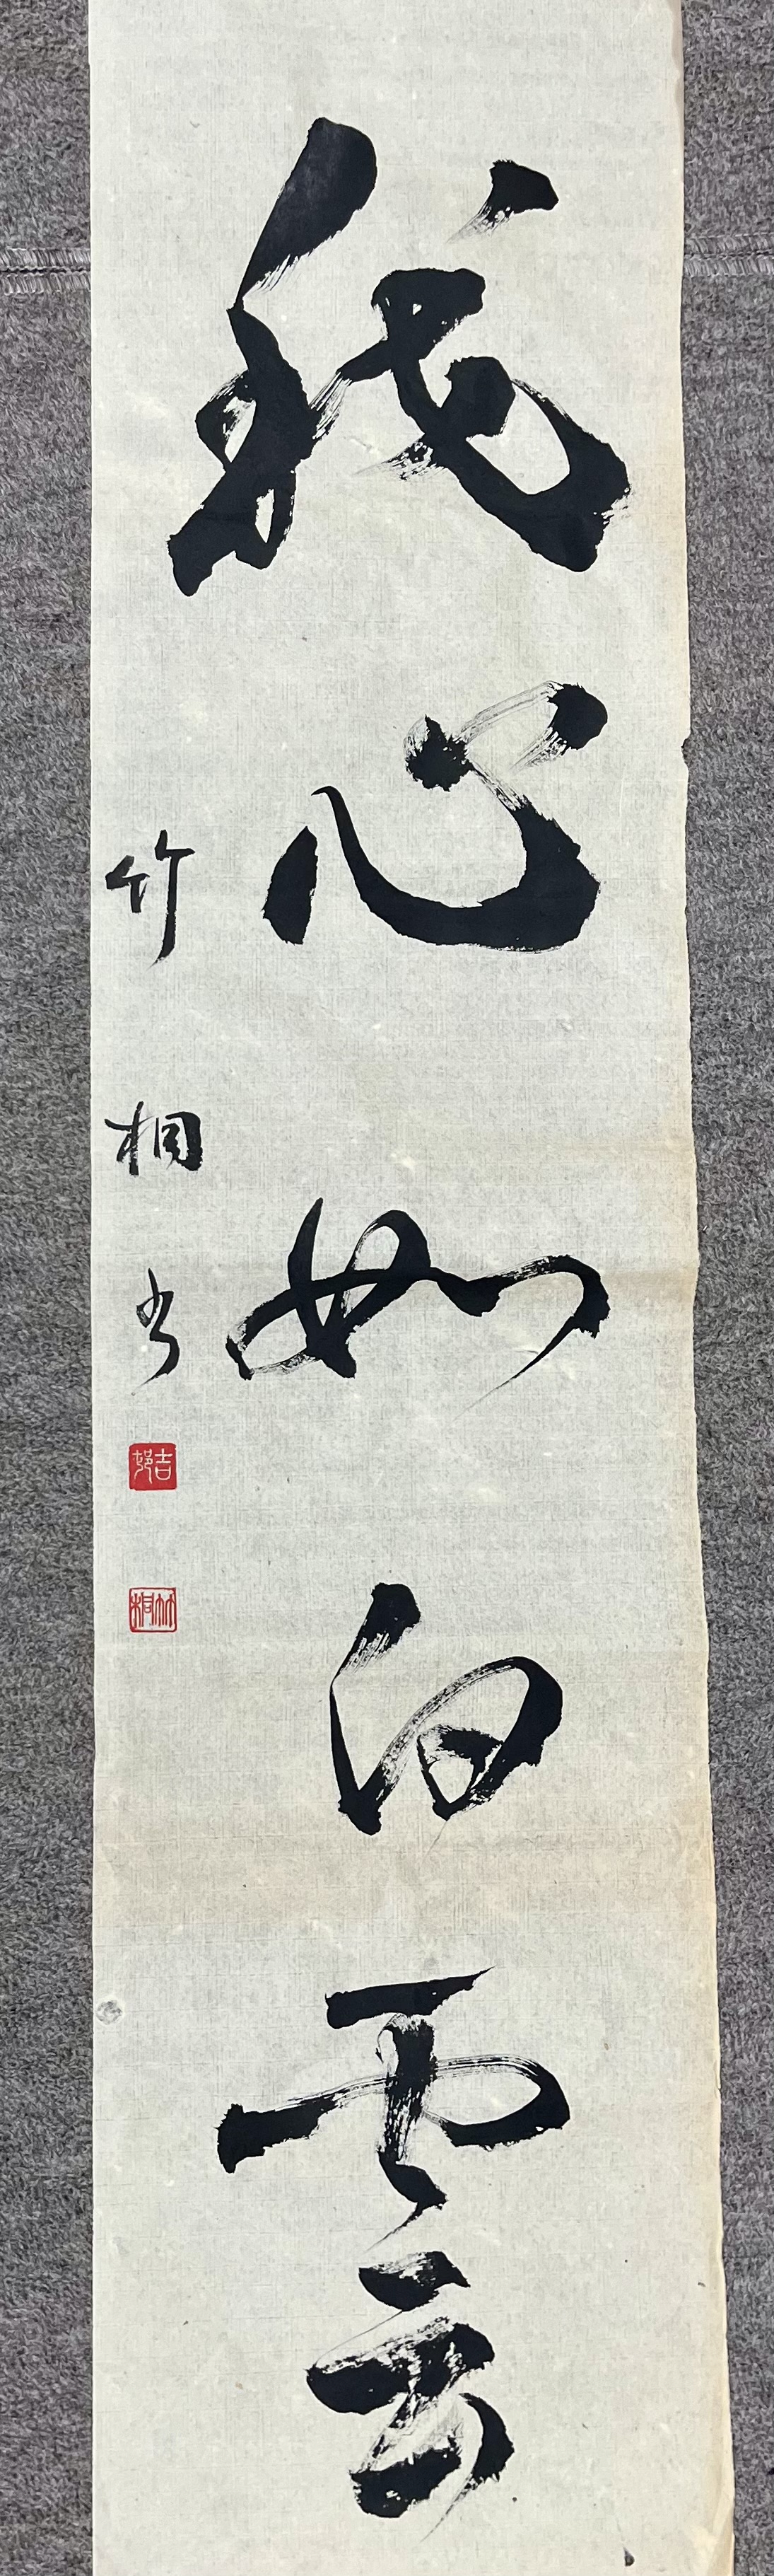 我心如白雲
竹桐书
吉邨
竹桐